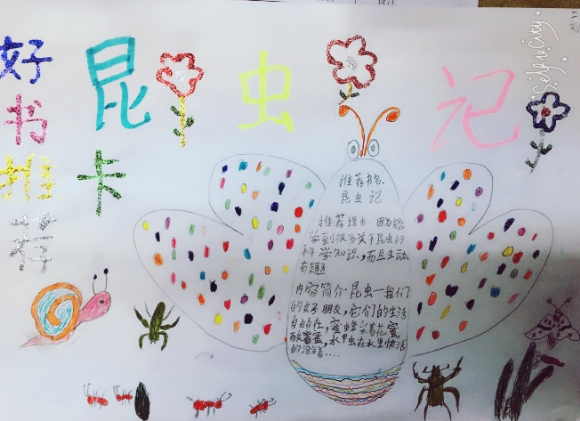 好书推荐卡
昆虫记
推荐书名
昆虫记
推荐理由
学到很多关于昆虫的
科学知识，而且生动
有趣
内容简介：昆虫一我们
的好朋友，它们的生活
自由自在，蜜蜂采着花蜜
酿蜜蜜，水中虫在水里快活
的游着....